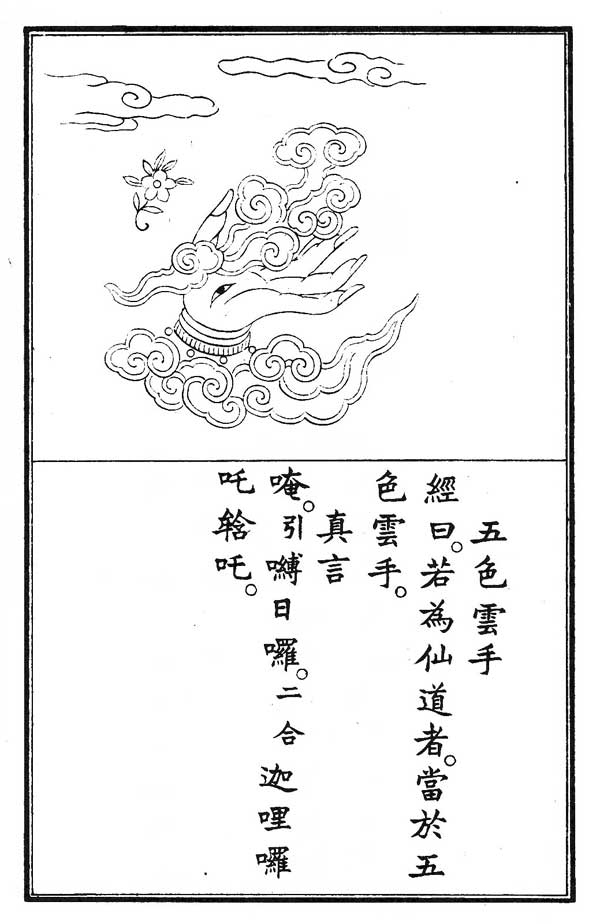 五色雲手
經曰。若為仙道者。當於五
色雲手。
真言
唵。引嚩日囉。二合迦哩囉
吒䤥吒。